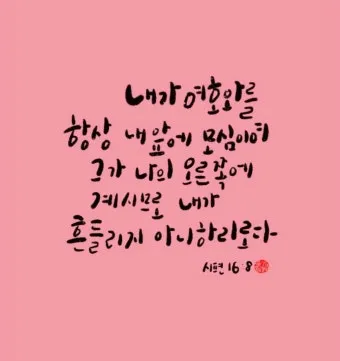 내가 여호와를
항상 내 앞에 모심이여
그가 나의 오른쪽에
계시므로 내가
흔들리지 아니하리로다
시편 16:8